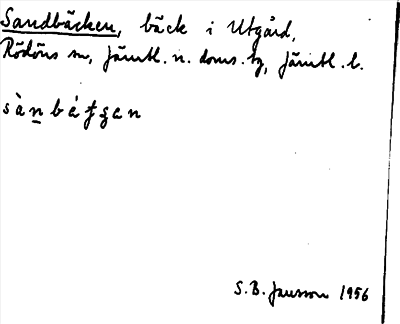 Sandbäcken, bäck i Utgård,
Rödöns sn, Jämtl. n. doms. tg, Jämtl. l.
S.B. Jansson 1956